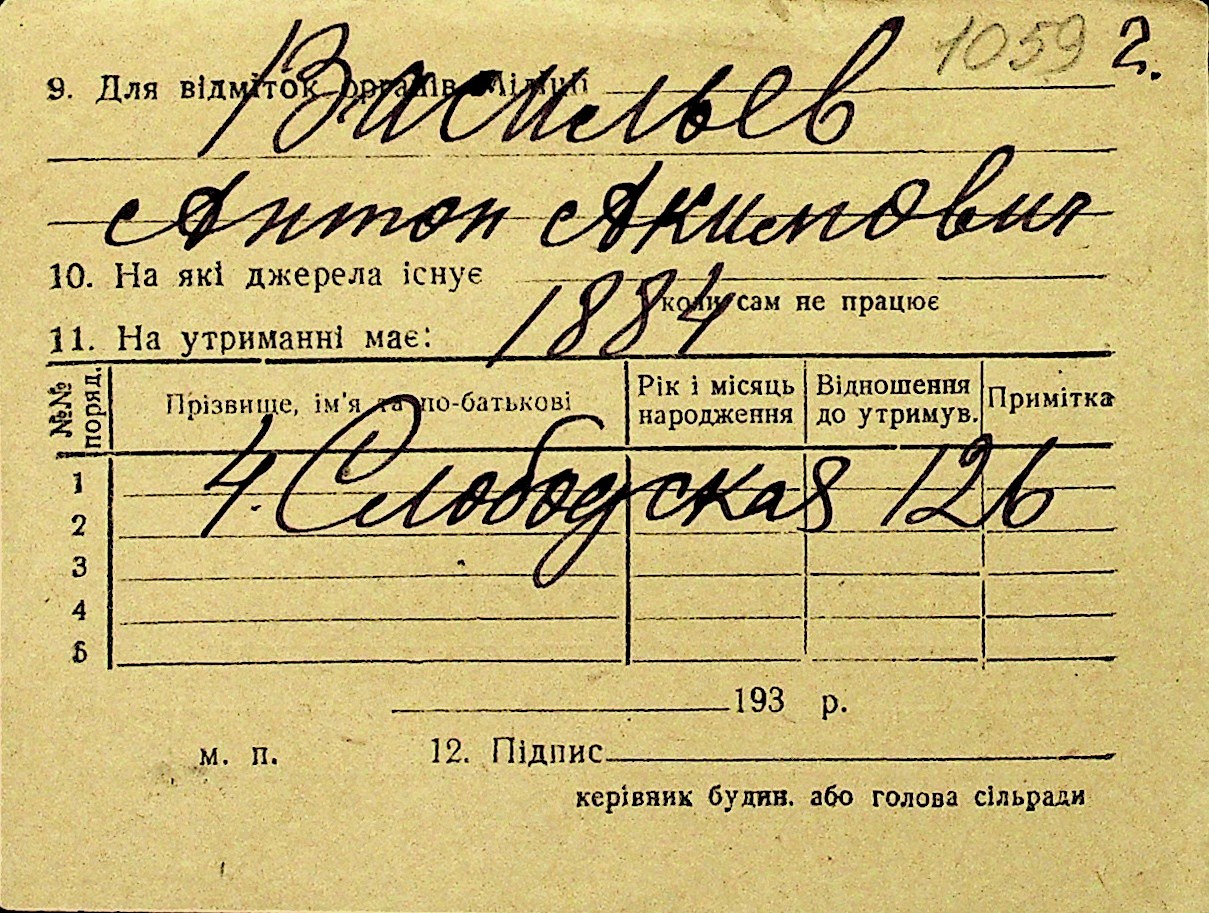 1059 2.
Васильев
9. Для відміток органів міліції
Антон Акимович
10. На які джерела існує
коли сам не працює
1884
11. На утриманні має:
№№ поряд. Прізвище, ім'я та по-батькові Рік і місяць народження Відношення до утримув. Примітка
4. Слободская 126
1
2
3
4
5
193 р.
м. п. 12. Підпис
керівник будин. або голова сільради